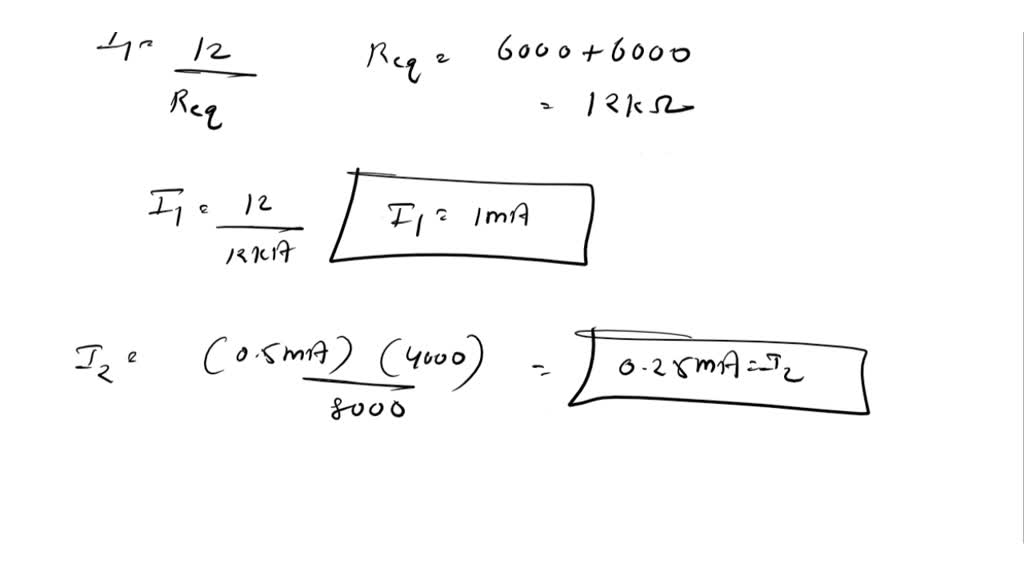 I1 = 12 / Req Req = 6000 + 6000
= 12kΩ
I1 = 12 / 12kA I1 = 1mA
I2 = (0.5mA) (4000) / 8000 = 0.25mA = I2